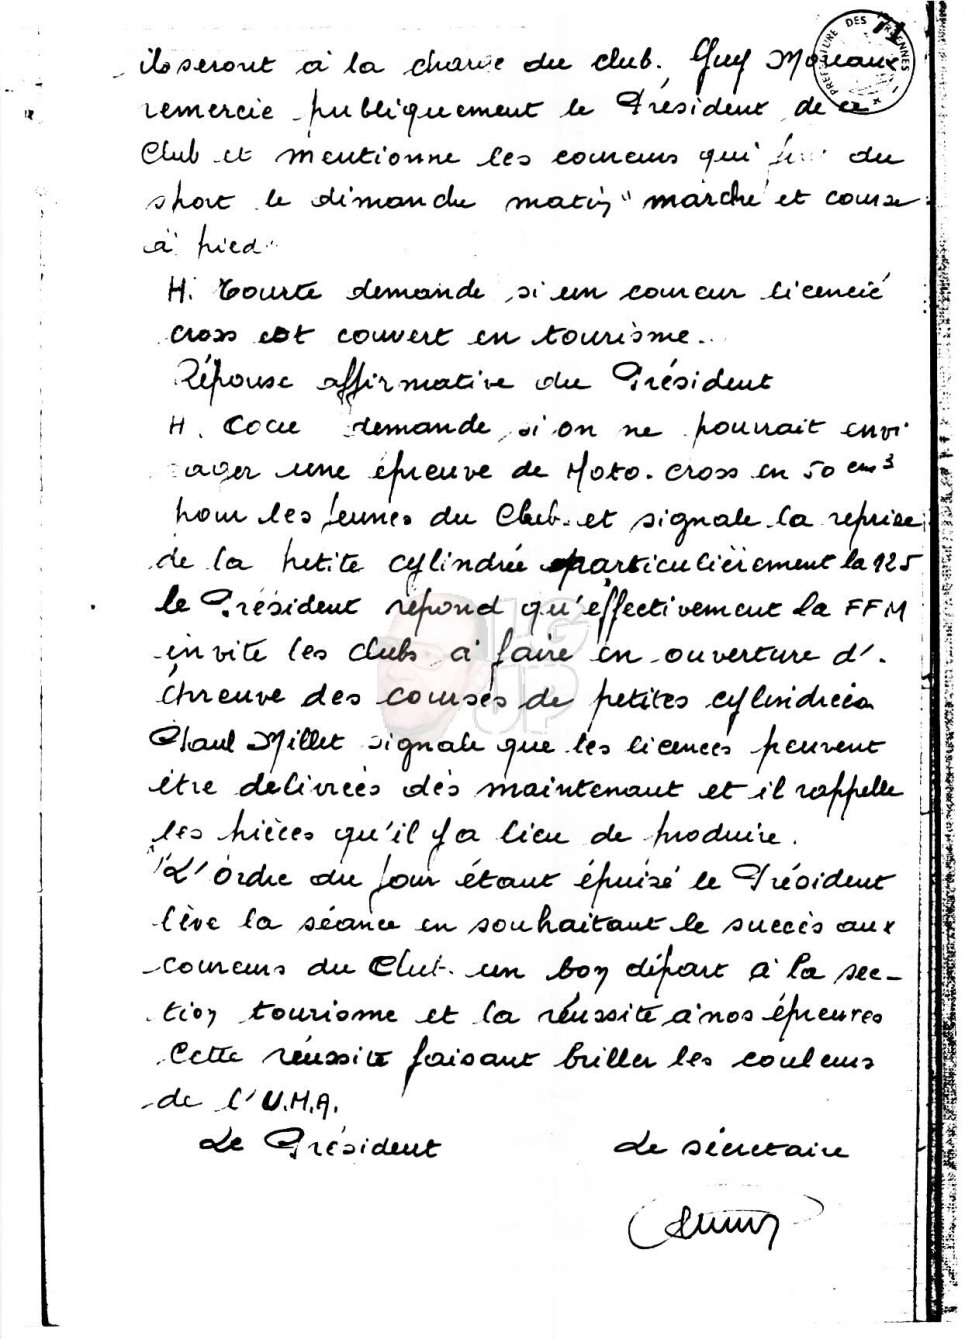 PREFECTURE DES ARDENNES
ils seront à la charge du club. Guy Moreaux
remercie publiquement le Président de ce
Club et mentionne les coureurs qui font du
sport le dimanche matin "marche et course
à pied"
H. Tourte demande si un coureur licencié
cross est couvert en tourisme.
Réponse affirmative du Président
H. Cocu demande si on ne pourrait envi
sager une épreuve de Moto-cross en 50 cm3
pour les jeunes du Club et signale la reprise
de la petite cylindrée particulièrement la 125
le Président répond qu'effectivement la FFM
invite les clubs à faire en ouverture d'
épreuve des courses de petites cylindrées
Paul Millet signale que les licences peuvent
être délivrées dès maintenant et il rappelle
les pièces qu'il y a lieu de produire.
L'ordre du jour étant épuisé le Président
lève la séance en souhaitant le succès aux
coureurs du Club. un bon départ à la sec-
tion tourisme et la réussite à nos épreuves
Cette réussite faisant briller les couleurs
de l'U.M.A.
Le Président Le secrétaire